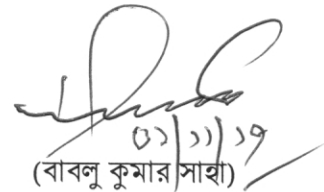 ০১/১১/১৭
(বাবলু কুমার সাহা)